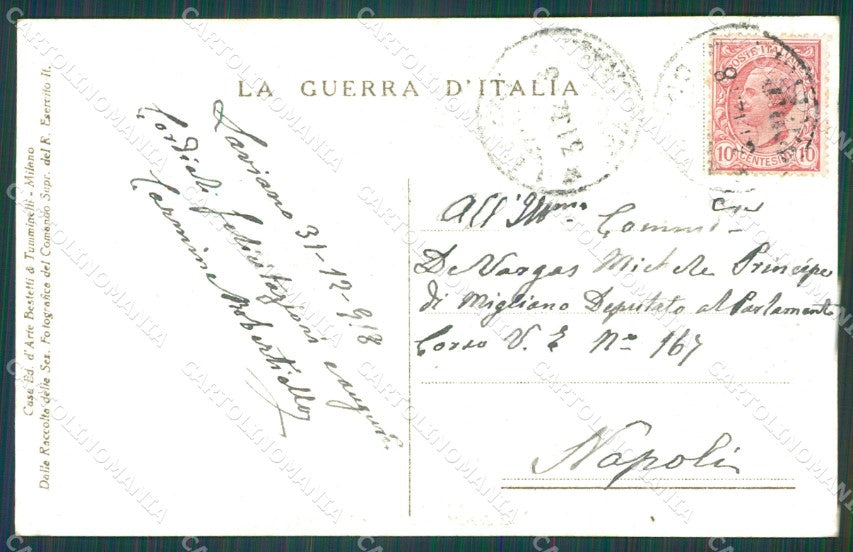 LA GUERRA D'ITALIA
POSTE ITALIANE
10 CENTESIMI 10
Laviano 31-12-918
Cordiali felicitazioni e auguri
Carmine Robertiello
All'Ill.mo Comm.
De Vargas Michele Principe
di Migliano Deputato al Parlamento
Corso V. E. No 167
Napoli
Casa Ed. d'Arte Bestetti & Tumminelli - Milano
Dalle Raccolte della Sez. Fotografica del Comando Supr. del R. Esercito It.
CARTOLINOMANIA